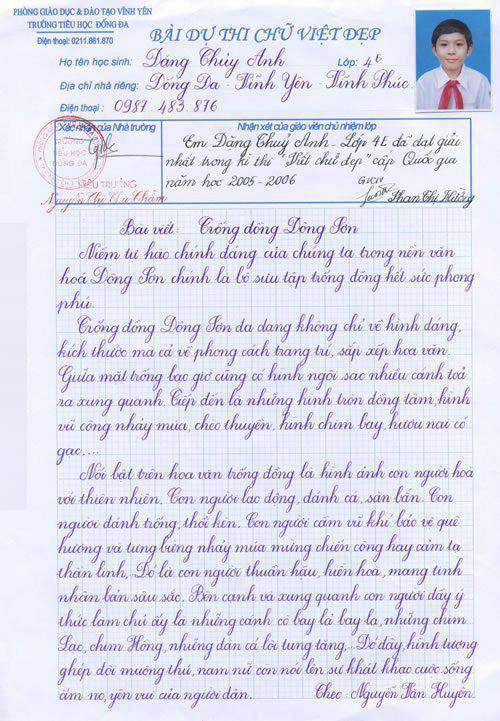 PHÒNG GIÁO DỤC & ĐÀO TẠO VĨNH YÊN
TRƯỜNG TIỂU HỌC ĐỐNG ĐA
Điện thoại: 0211.861.870
BÀI DỰ THI CHỮ VIỆT ĐẸP
Họ tên học sinh: Đặng Thủy Anh Lớp: 4E
Địa chỉ nhà riêng: Đống Đa - Vĩnh Yên - Vĩnh Phúc.
Điện thoại: 0987 483 876
Xác nhận của Nhà trường
HIỆU TRƯỞNG
Nhận xét của giáo viên chủ nhiệm lớp
Em Đặng Thuỳ Anh - Lớp 4E đã đạt giải
nhất trong kì thi "Viết chữ đẹp" cấp Quốc gia
năm học 2005 - 2006
GVCN
Phan Thị Hường
Bài viết: Trống đồng Đông Sơn
Niềm tự hào chính đáng của chúng ta trong nền văn
hoá Đông Sơn chính là bộ sưu tập trống đồng hết sức phong
phú.
Trống đồng Đông Sơn đa dạng không chỉ về hình dáng,
kích thước mà cả về phong cách trang trí, sắp xếp hoa văn.
Giữa mặt trống bao giờ cũng có hình ngôi sao nhiều cánh toả
ra xung quanh. Tiếp đến là những hình tròn đồng tâm, hình
vũ công nhảy múa, chèo thuyền, hình chim bay, hươu nai có
gạc,...
Nổi bật trên hoa văn trống đồng là hình ảnh con người hoà
với thiên nhiên. Con người lao động, đánh cá, săn bắn. Con
người đánh trống, thổi kèn. Con người cầm vũ khí bảo vệ quê
hương và tưng bừng nhảy múa mừng chiến công hay cảm tạ
thần linh, Đó là con người thuần hậu, hiền hoà, mang tính
nhân bản sâu sắc. Bên cạnh và xung quanh con người đầy ý
thức làm chủ ấy là những cánh cò bay lả bay la, những chim
Lạc, chim Hồng, những đàn cá lội tung tăng,... Đó đây, hình tượng
ghép đôi muông thú, nam nữ còn nói lên sự khát khao cuộc sống
ấm no, yên vui của người dân. Theo: Nguyễn Văn Huyên.